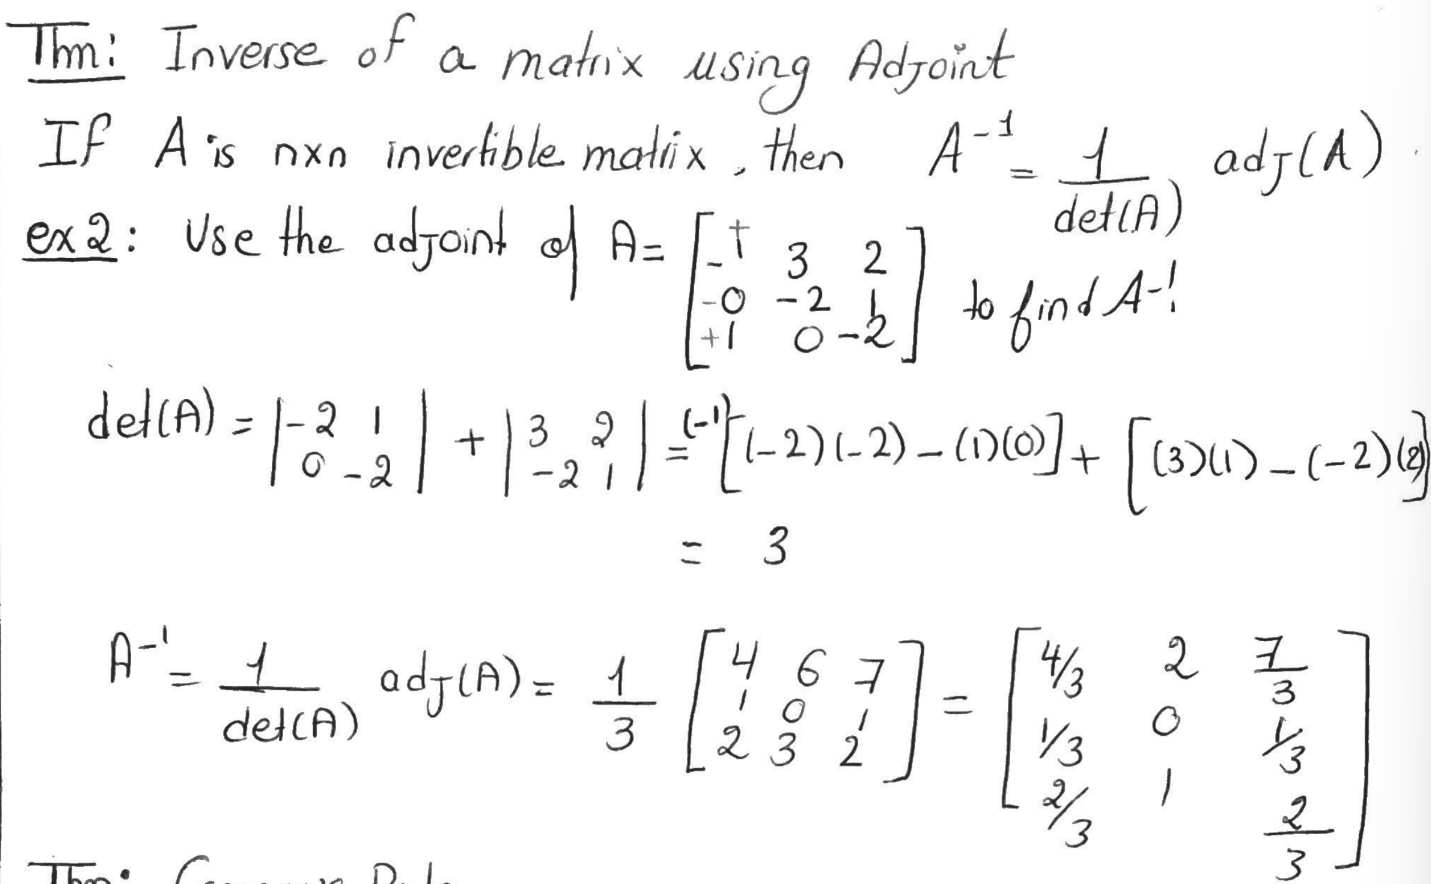 Thm: Inverse of a matrix using Adjoint
If A is nxn invertible matrix, then A⁻¹ = 1/det(A) adj(A).
ex 2: Use the adjoint of A = [-1 3 2; 0 -2 1; 1 0 -2] to find A⁻¹
det(A) = |-2 1; 0 -2| + |3 2; -2 1| = (-1)[(-2)(-2) - (1)(0)] + [(3)(1) - (-2)(2)]
= 3
A⁻¹ = 1/det(A) adj(A) = 1/3 [4 6 7; 1 0 1; 2 3 2] = [4/3 2 7/3; 1/3 0 1/3; 2/3 1 2/3]
Thm: